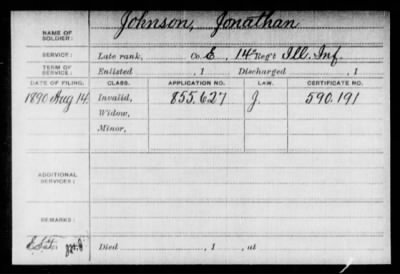 NAME OF SOLDIER: Johnson, Jonathan
SERVICE: Late rank, Co. E, 14 Reg't Ill. Inf.
TERM OF SERVICE: Enlisted , 1 Discharged , 1
DATE OF FILING. CLASS. APPLICATION NO. LAW. CERTIFICATE NO.
1890 Aug 14. Invalid, 855.627 J. 590.191
Widow,
Minor,
ADDITIONAL SERVICES:
REMARKS:
Died , 1 , at